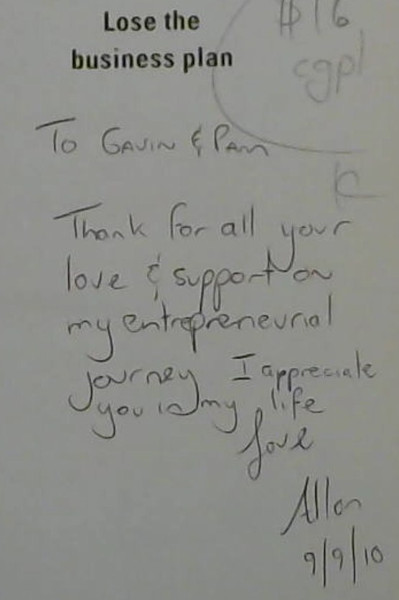 Lose the
business plan
$16
cgpl
To Gavin & Pam
Thank for all your
love & support on
my entrepreneurial
journey I appreciate
you in my life
Love
Allon
9/9/10